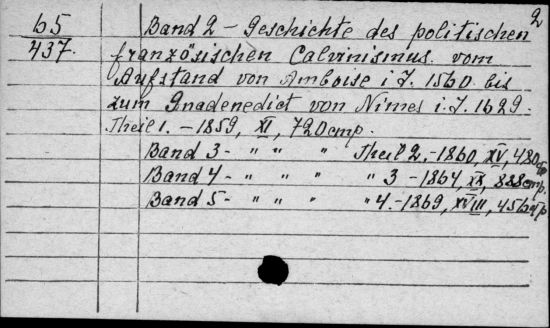 2
65 Band 2 - Geschichte des politischen
437. französischen Calvinismus vom
Aufstand von Amboise i. J. 1560. bis
zum Gnadenedict von Nimes i. J. 1629.
Theil 1. - 1859, XI, 720 cmp.
Band 3 - " " " Theil 2, - 1860, XV, 480
Band 4 - " " " " 3 - 1864, 888 cmp,
Band 5 - " " " " 4. - 1869, XVIII, 456